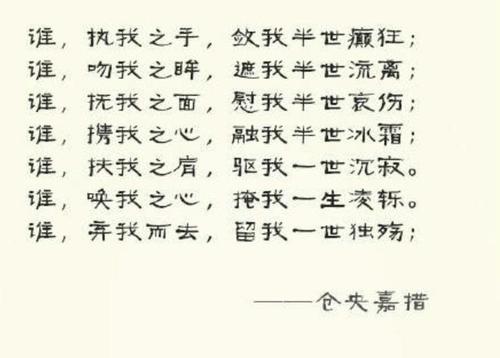 谁，执我之手，敛我半世癫狂；
谁，吻我之眸，遮我半世流离；
谁，抚我之面，慰我半世哀伤；
谁，携我之心，融我半世冰霜；
谁，扶我之肩，驱我一世沉寂。
谁，唤我之心，掩我一生凌轹。
谁，弃我而去，留我一世独殇；
——仓央嘉措